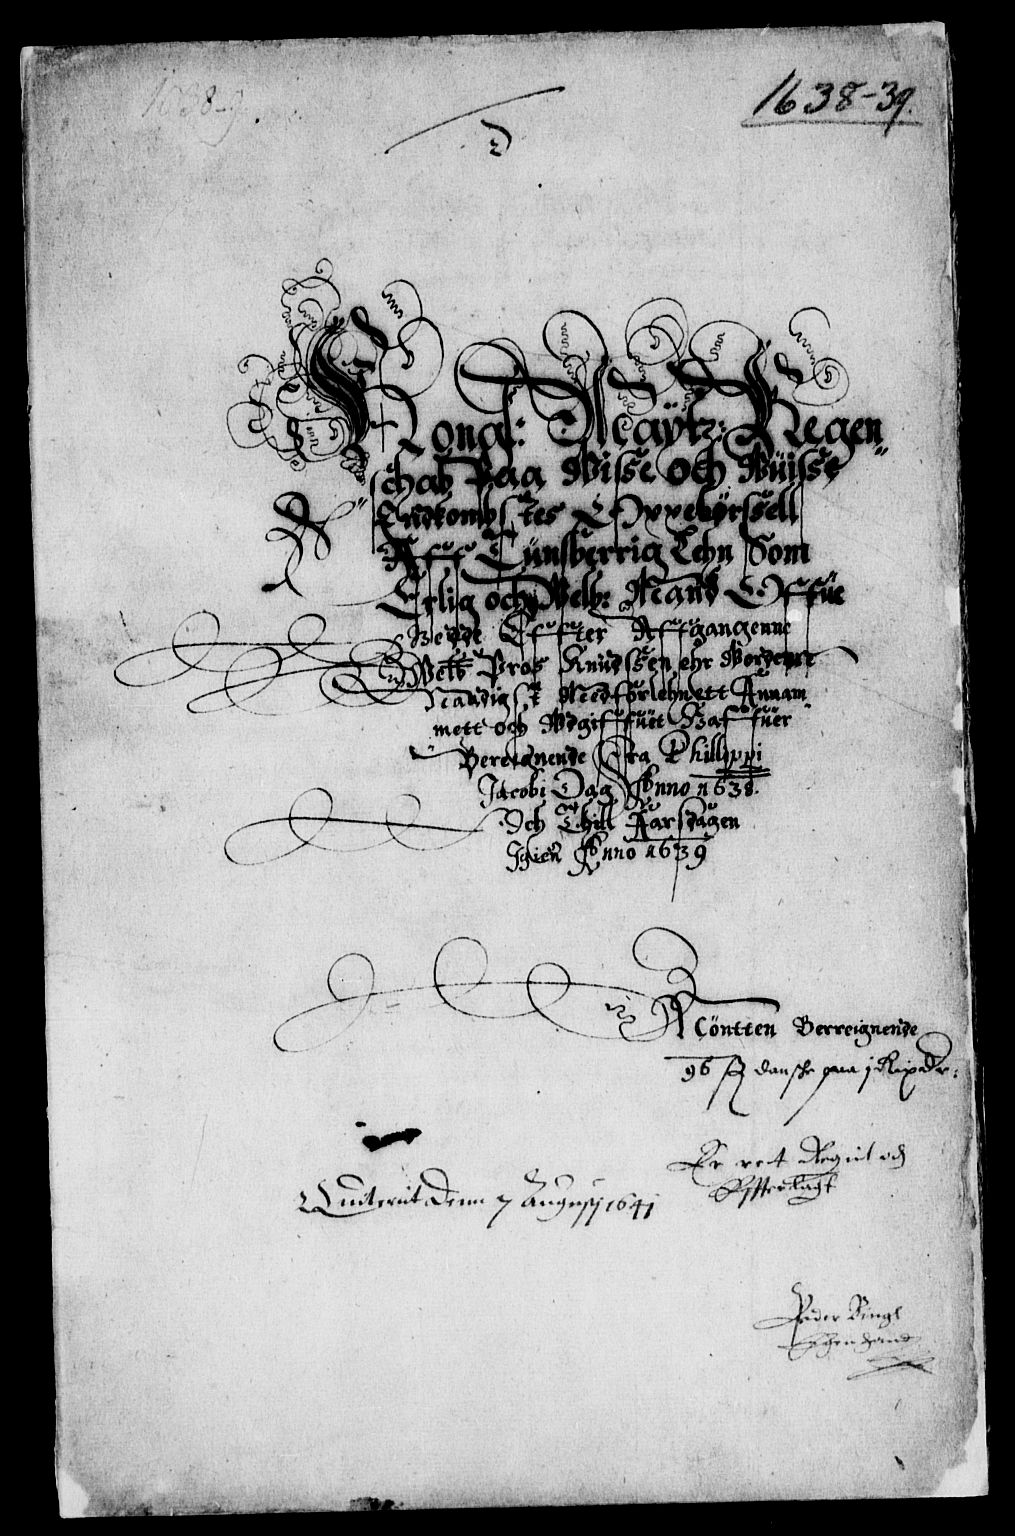 1638-9.
1638-39.
2
Kongl: Maÿtz: Regen
schab Paa Wisse och Wüisse
Indkombstes Oppebörssell
Aff Tünsberrig Lehn Som
Erlig och Welb: Mand Offüe
Bedde Effter Affgangenne
Welb Pros Knudssen ehr Wordenn
Naadigst Medforlehnett Annam
mett och Wdgiffüet Haffüer
Bereignende Fra Phillippi
Jacobi Dag Anno 1638.
Och Thill Aarsdagen
Igien Anno 1639
Acöntten Berreignende
96 ß danske paa j Rixdlr:
Er ret Regnit och
Offuerlagt
Qvuiterit Denn 7 Augusti 1641
Peder Ringh
Egen handt